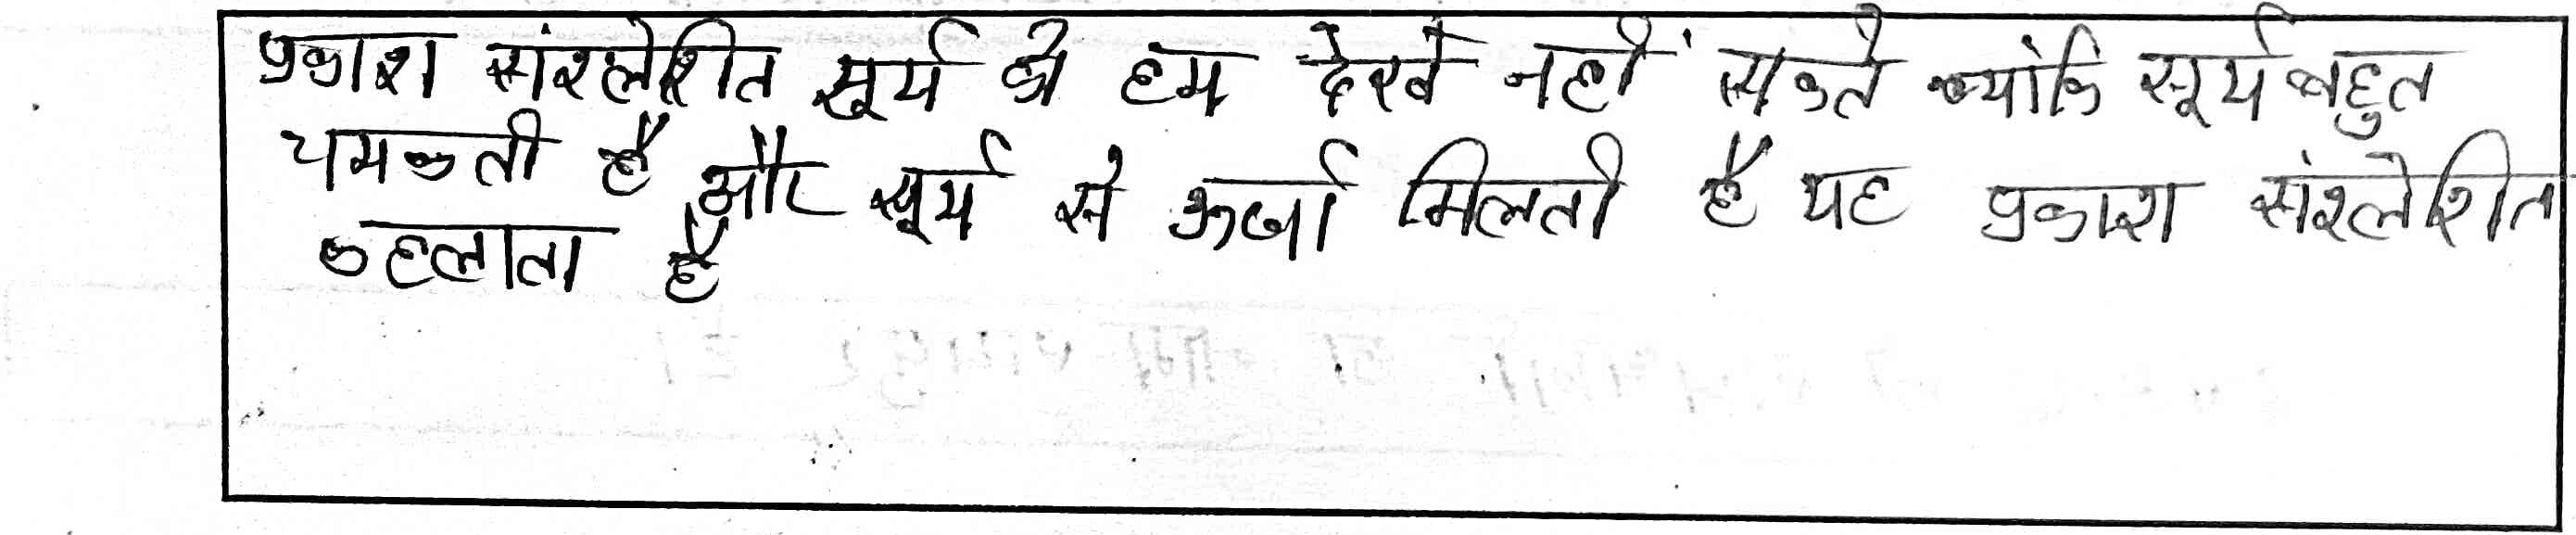 प्रकाश संश्लेशित सूर्य को हम देखे नहीं सकते क्योंकि सूर्य बहुत
चमकती है और सूर्य से ऊर्जा मिलती है यह प्रकाश संश्लेशित
कहलाता है